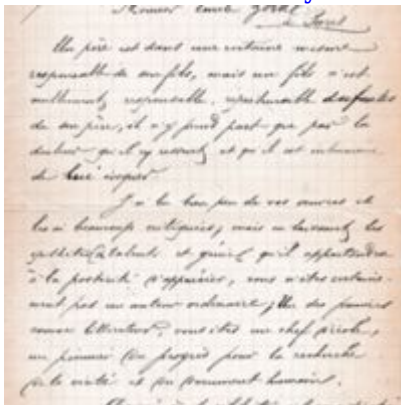 Monsieur Emile Zola
à Paris
Un père est dans une certaine mesure
responsable de son fils, mais un fils n'est
nullement responsable, des fautes
de son père, il n'y prend part que par la
douleur qu'il y ressent, et qu'il est
de lui
J'ai lu bien peu de vos œuvres et
les ai beaucoup critiquées, mais en laissant les
talents et qu'il appartiendra
à la postérité d'apprécier, vous n'êtes certaine-
ment pas un auteur ordinaire ; Un des
comme littérateur, vous êtes un chef d'école,
un pionnier du progrès pour la recherche
de la vérité et du document humain.